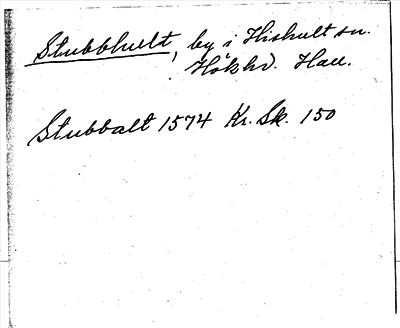 Stubbhult, by i Hishult sn.
Hökhd. Hall.
Stubbalt 1574 Kr. Sk. 150